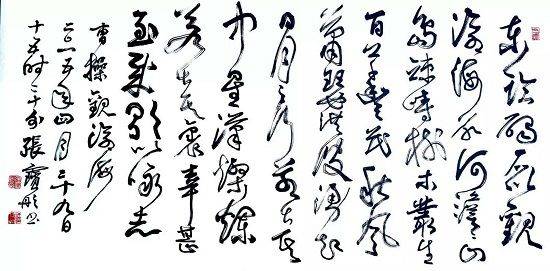 東臨碣石以觀
滄海水何澹澹山
島竦峙樹木叢生
百草豐茂秋風
蕭瑟洪波湧起
日月之行若出其
中星漢燦爛
若出其裏幸甚
至哉歌以詠志
曹操觀滄海
二〇一五年四月二十九日
十五時二十分 張寶彤書